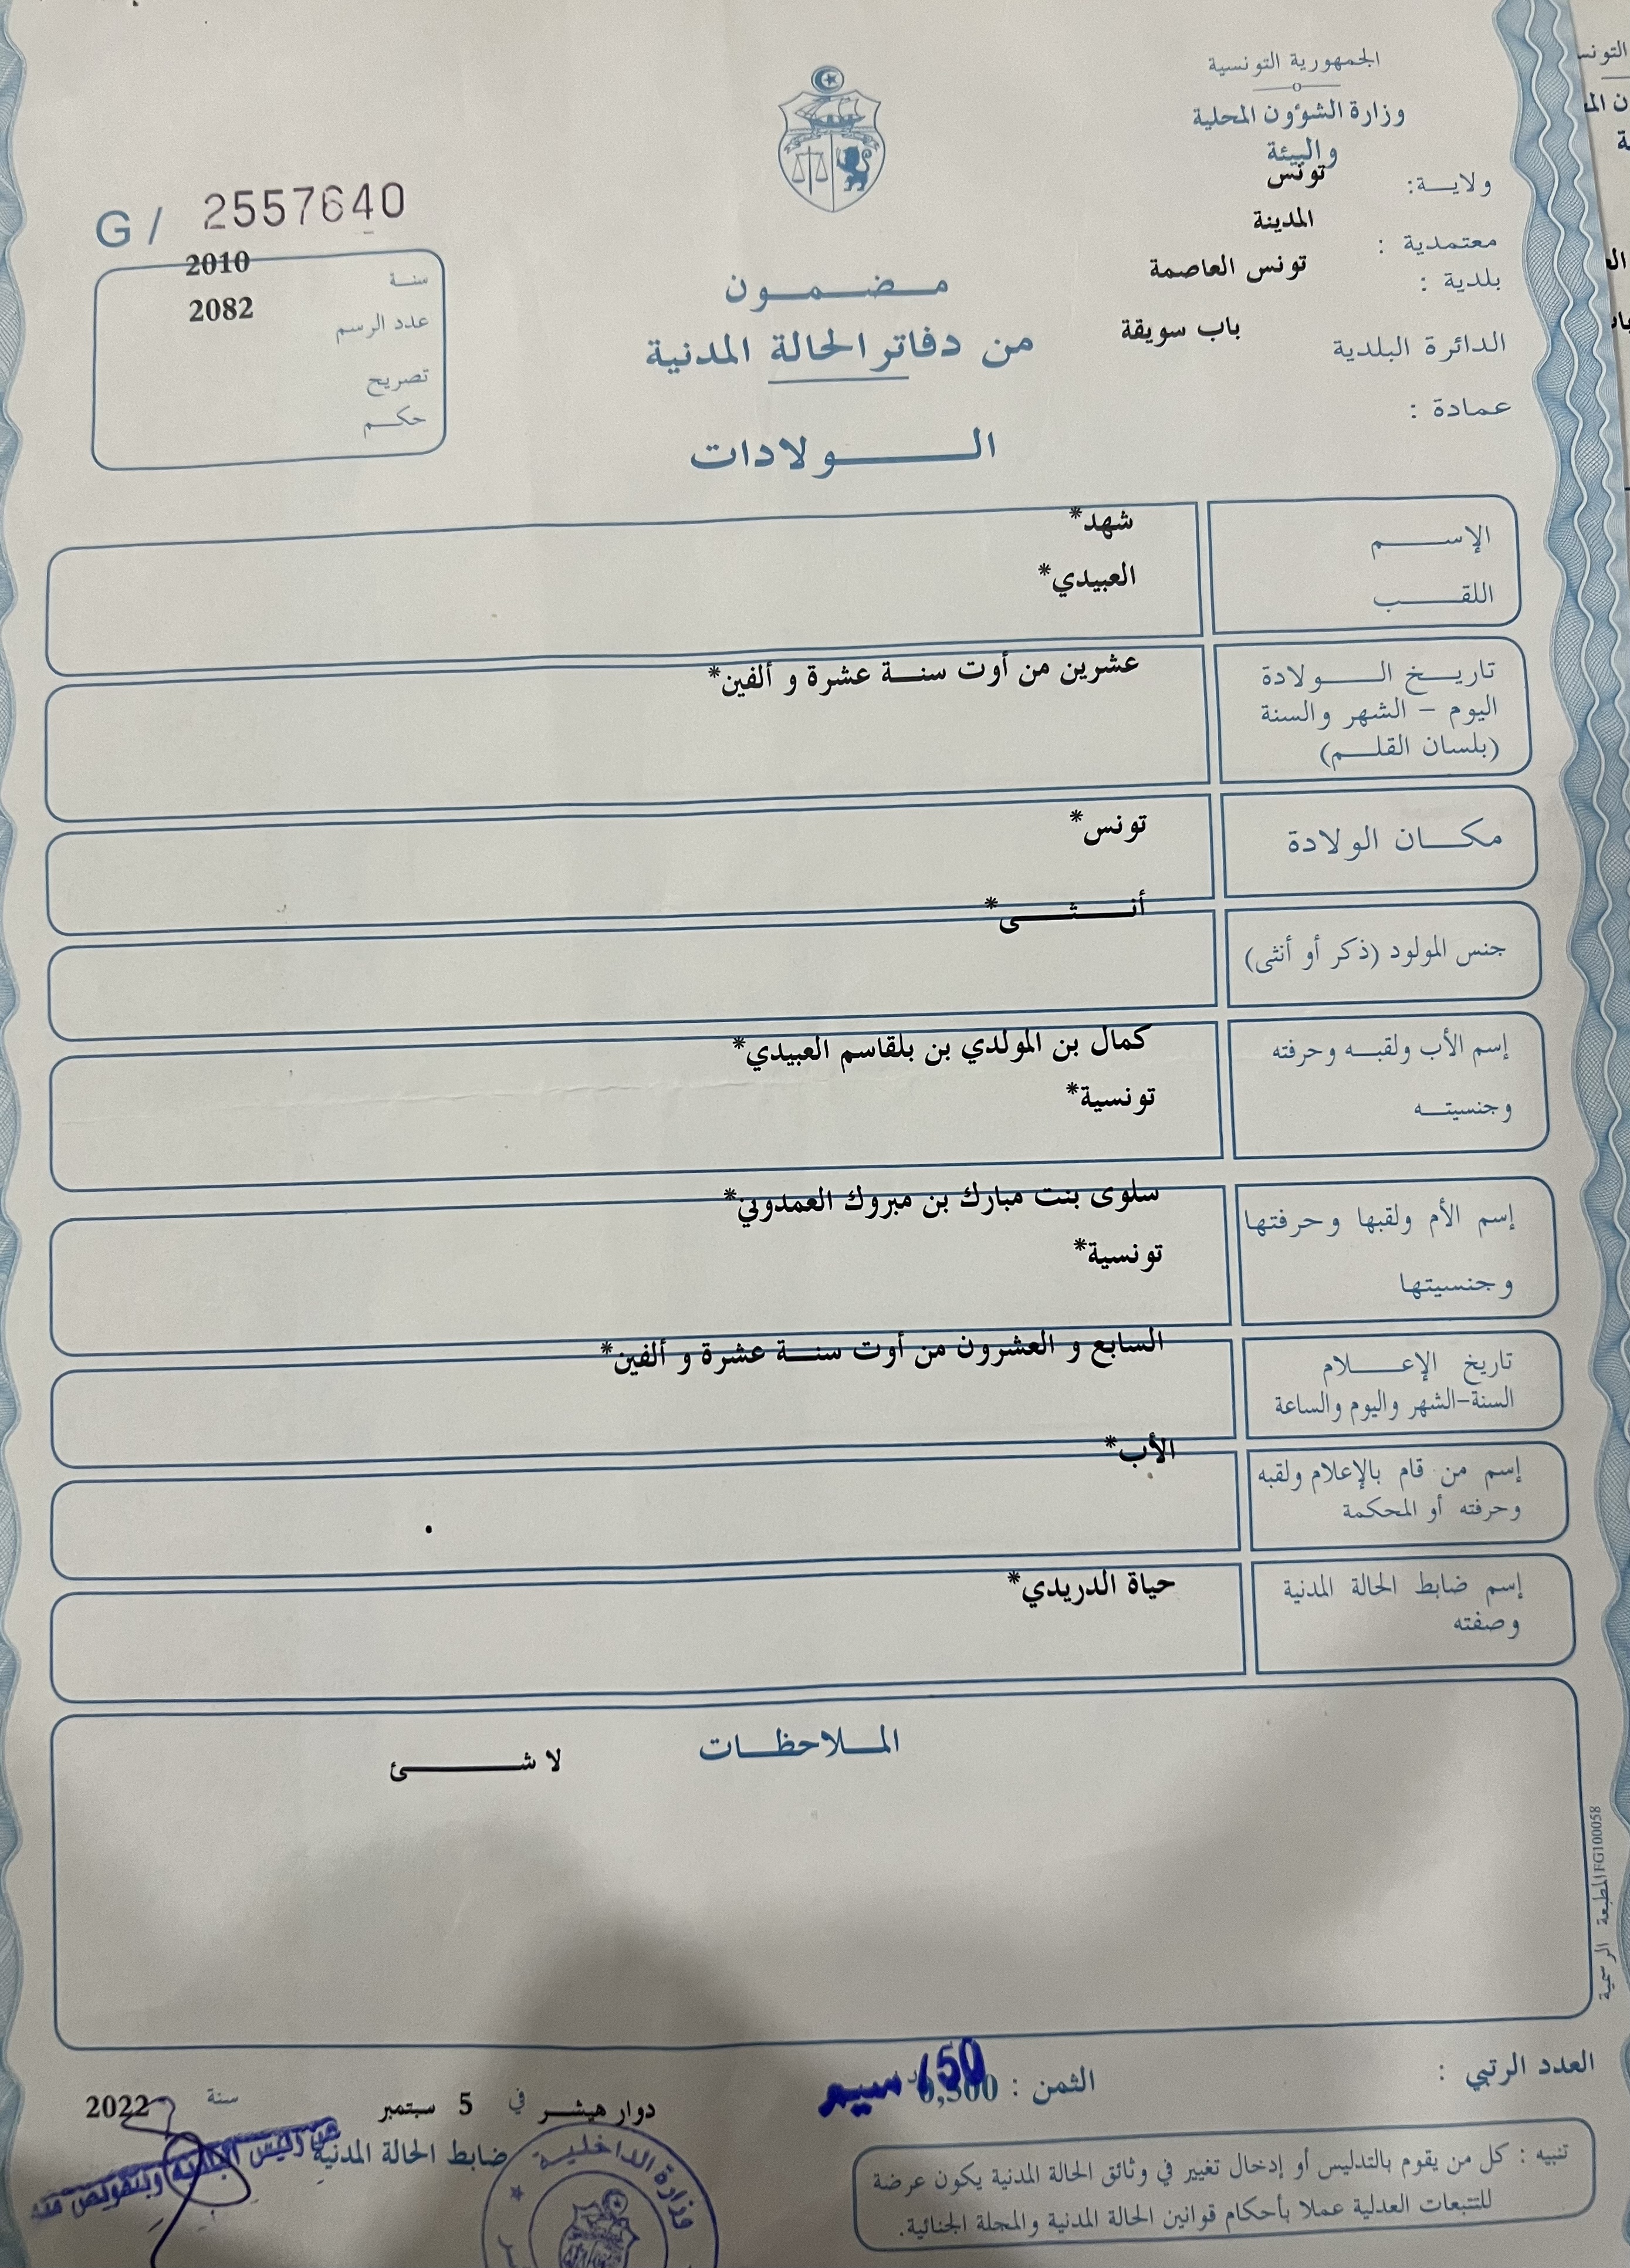 الجمهورية التونسية
وزارة الشؤون المحلية
والبيئة
ولايـــة: تونس
معتمدية : المدينة
بلدية : تونس العاصمة
الدائرة البلدية باب سويقة
عمادة :
G / 2557640
سنـة 2010
عدد الرسم 2082
تصريح
حكـم
مـضـمـون
من دفاتر الحالة المدنية
الـــولادات
الإســـم شهد*
اللقــب العبيدي*
تاريــخ الـــولادة عشرين من أوت سنــة عشرة و ألفين*
اليوم – الشهر والسنة
(بلسان القلـم)
مكــان الولادة تونس*
جنس المولود (ذكر أو أنثى) أنـــثـــى*
إسم الأب ولقبـه وحرفته كمال بن المولدي بن بلقاسم العبيدي*
وجنسيتـه تونسية*
إسم الأم ولقبها وحرفتها سلوى بنت مبارك بن مبروك العمدوني*
وجنسيتها تونسية*
تاريخ الإعـــلام السابع و العشرون من أوت سنــة عشرة و ألفين*
السنة-الشهر واليوم والساعة
إسم من قام بالإعلام ولقبه الأب*
وحرفته أو المحكمة
إسم ضابط الحالة المدنية حياة الدريدي*
وصفته
المــلاحظــات
لا شـــــئ
المطبعة الرسمية FG100058
العدد الرتبي :
الثمن : 0,500
دوار هيشـر في 5 سبتمبر سنة 2022
ضابط الحالة المدنية
وزارة الداخلية
تنبيه : كل من يقوم بالتدليس أو إدخال تغيير في وثائق الحالة المدنية يكون عرضة
للتتبعات العدلية عملا بأحكام قوانين الحالة المدنية والمجلة الجنائية.